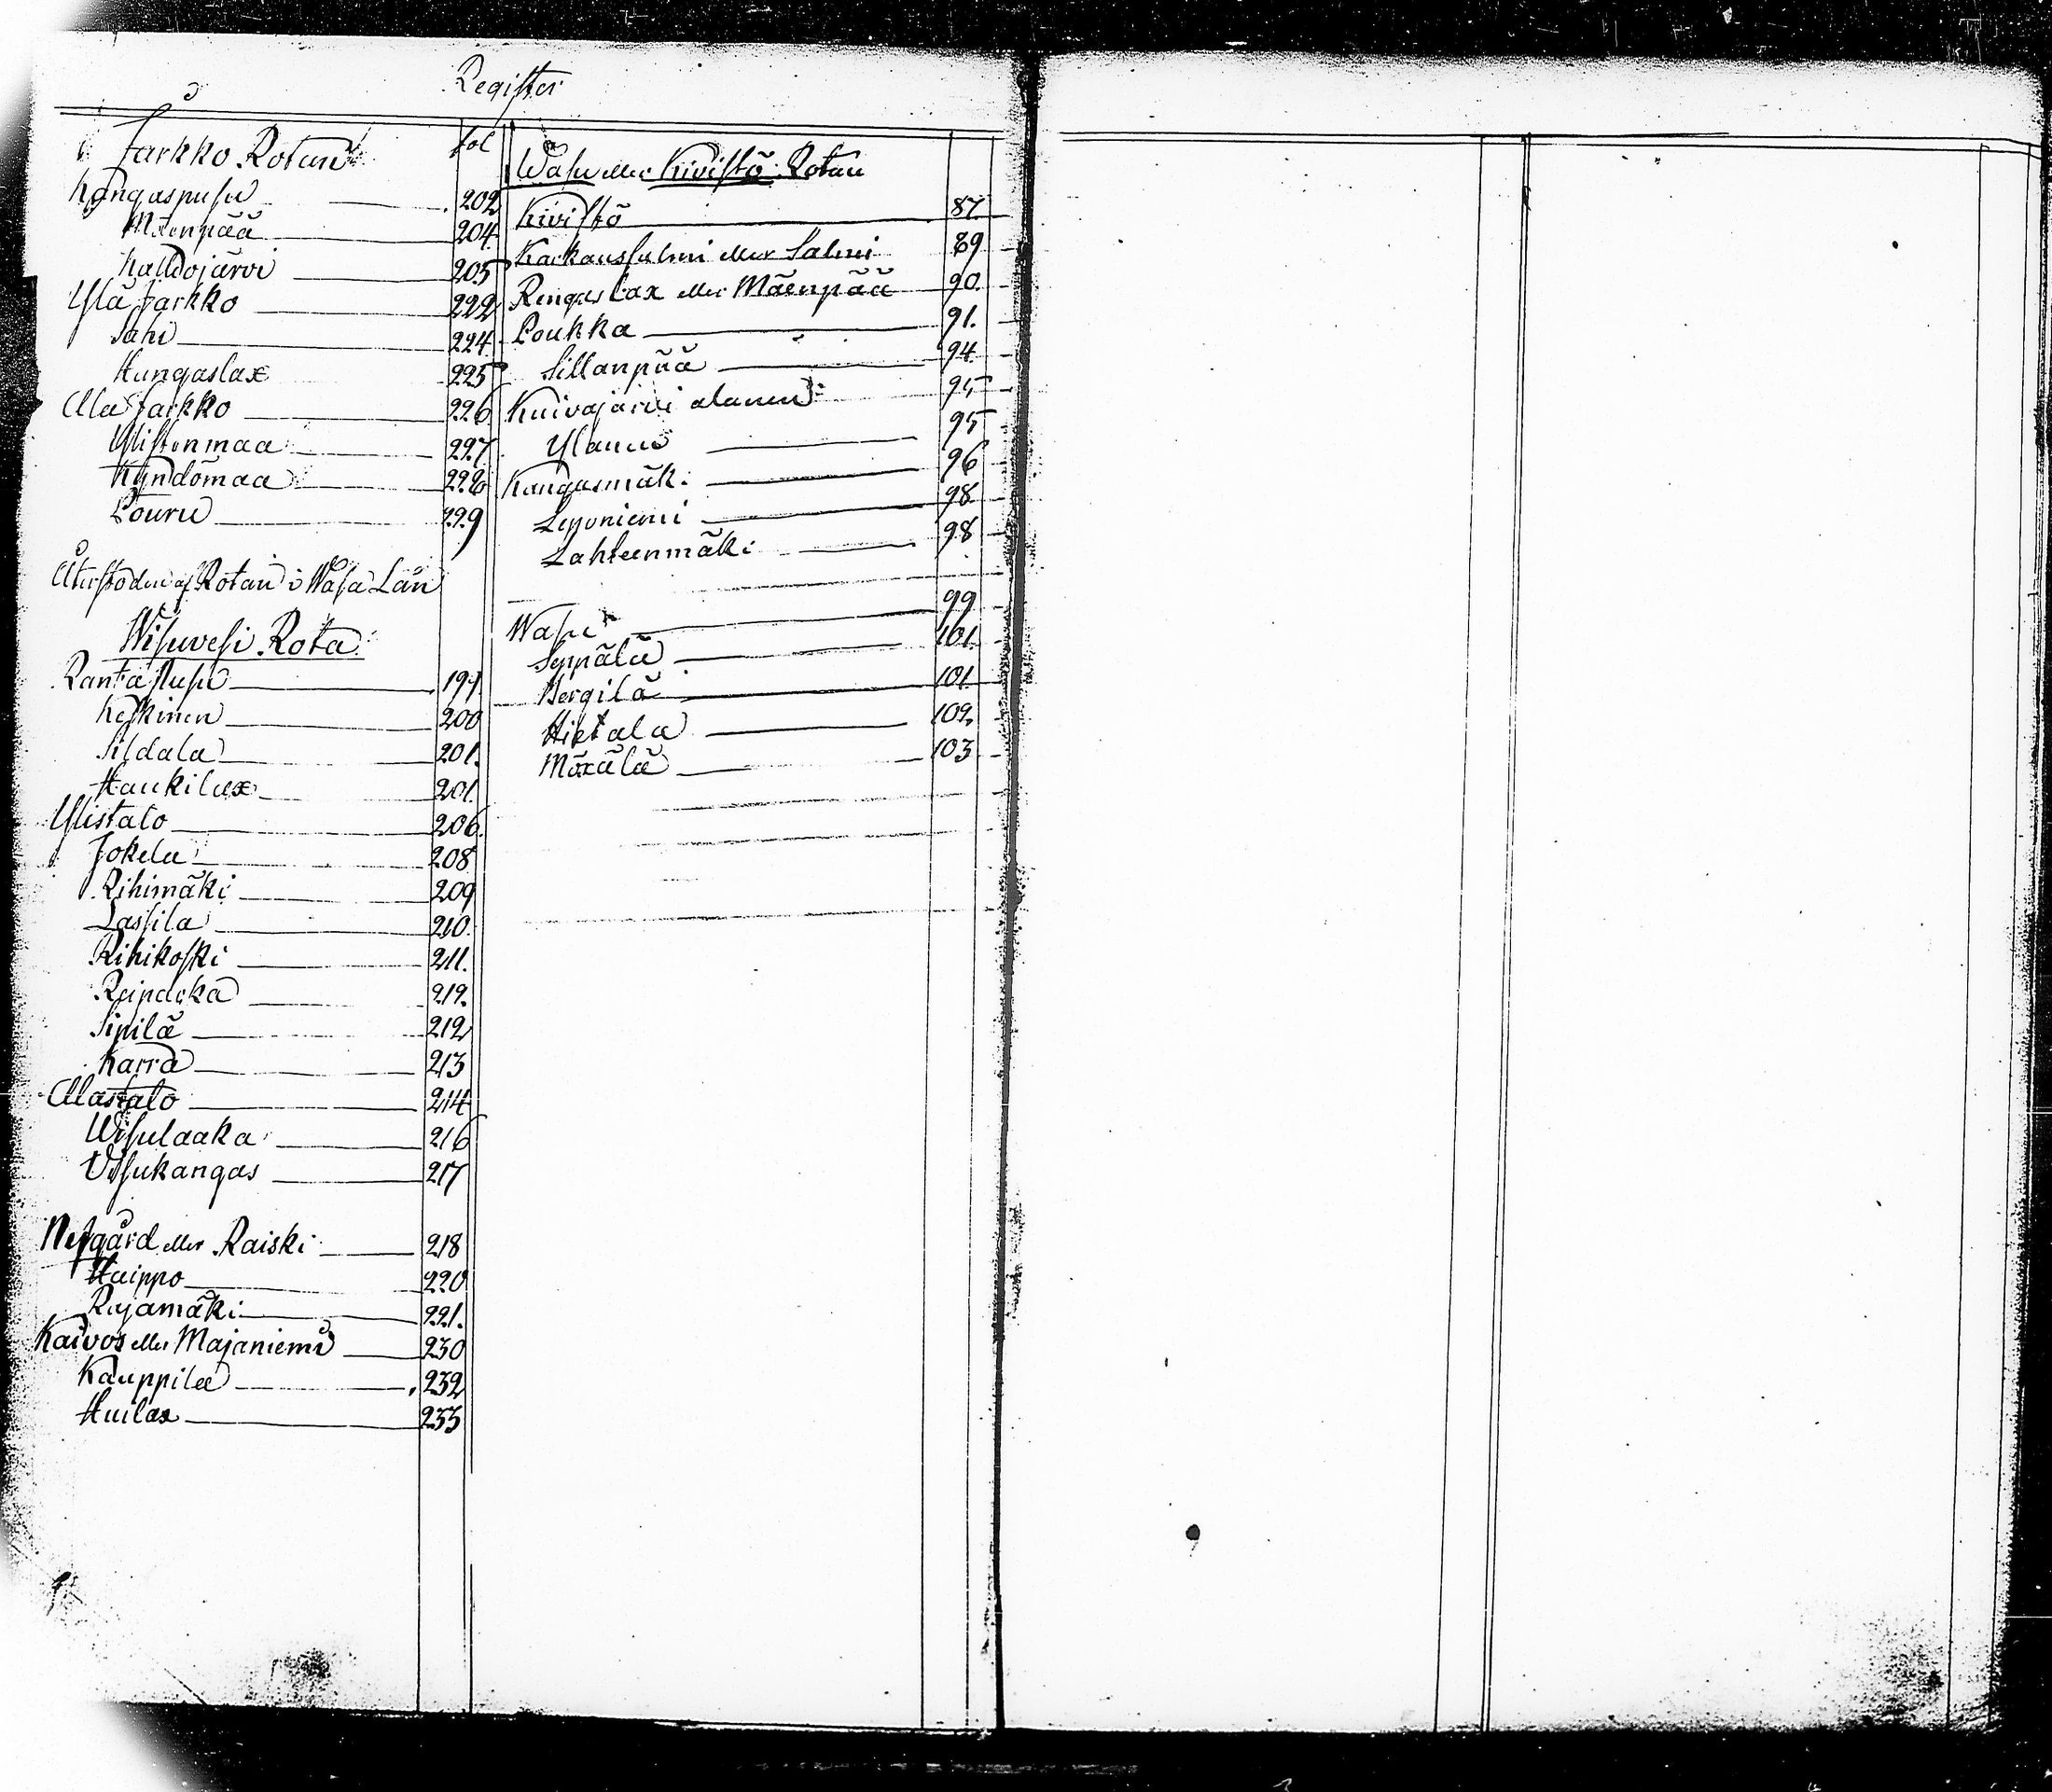 Register
Jarkko Rotan
Fol
Kangaspusu 202
Mäenpää 204
Kalliojärvi 205
Ylä Jarkko 222
Sahi 224
Hangaslax 225
Ala Jarkko 226
Ylistenmaa 227
Kyndömaa 228
Louru 229
Återstoden af Rotan i Wasa Län
Wisuvesi Rota
Ranta Pusu 199
Keskinen 200
Sildala 201.
Haukilax 201.
Ylistalo 206.
Jokela 208
Rihimäki 209
Lassila 210.
Rihikoski 211.
Reipacka 212.
Sipilä 212
Karra 213
Alastalo 214
Wisulaaka 216
Visukangas 217
Nygård eller Raiski 218
Haippo 220
Rajamäki 221.
Kaivos eller Majaniemi 230
Kauppila 232
Huilax 233
Wasu eller Kivistö Rotan
Kivistö 87.
Karkaussalmi eller Salmi 89
Rengaslax eller Mäenpää 90.
Loukka 91.
Sillanpää 94.
Kuivajärvi alanen 95
Ylanen 95
Kangasmäki 96
Leponiemi 98
Lahteenmäki 98
Wasu 99
Seppälä 101.
Hergilä 101.
Hietala 102.
Möxälä 103